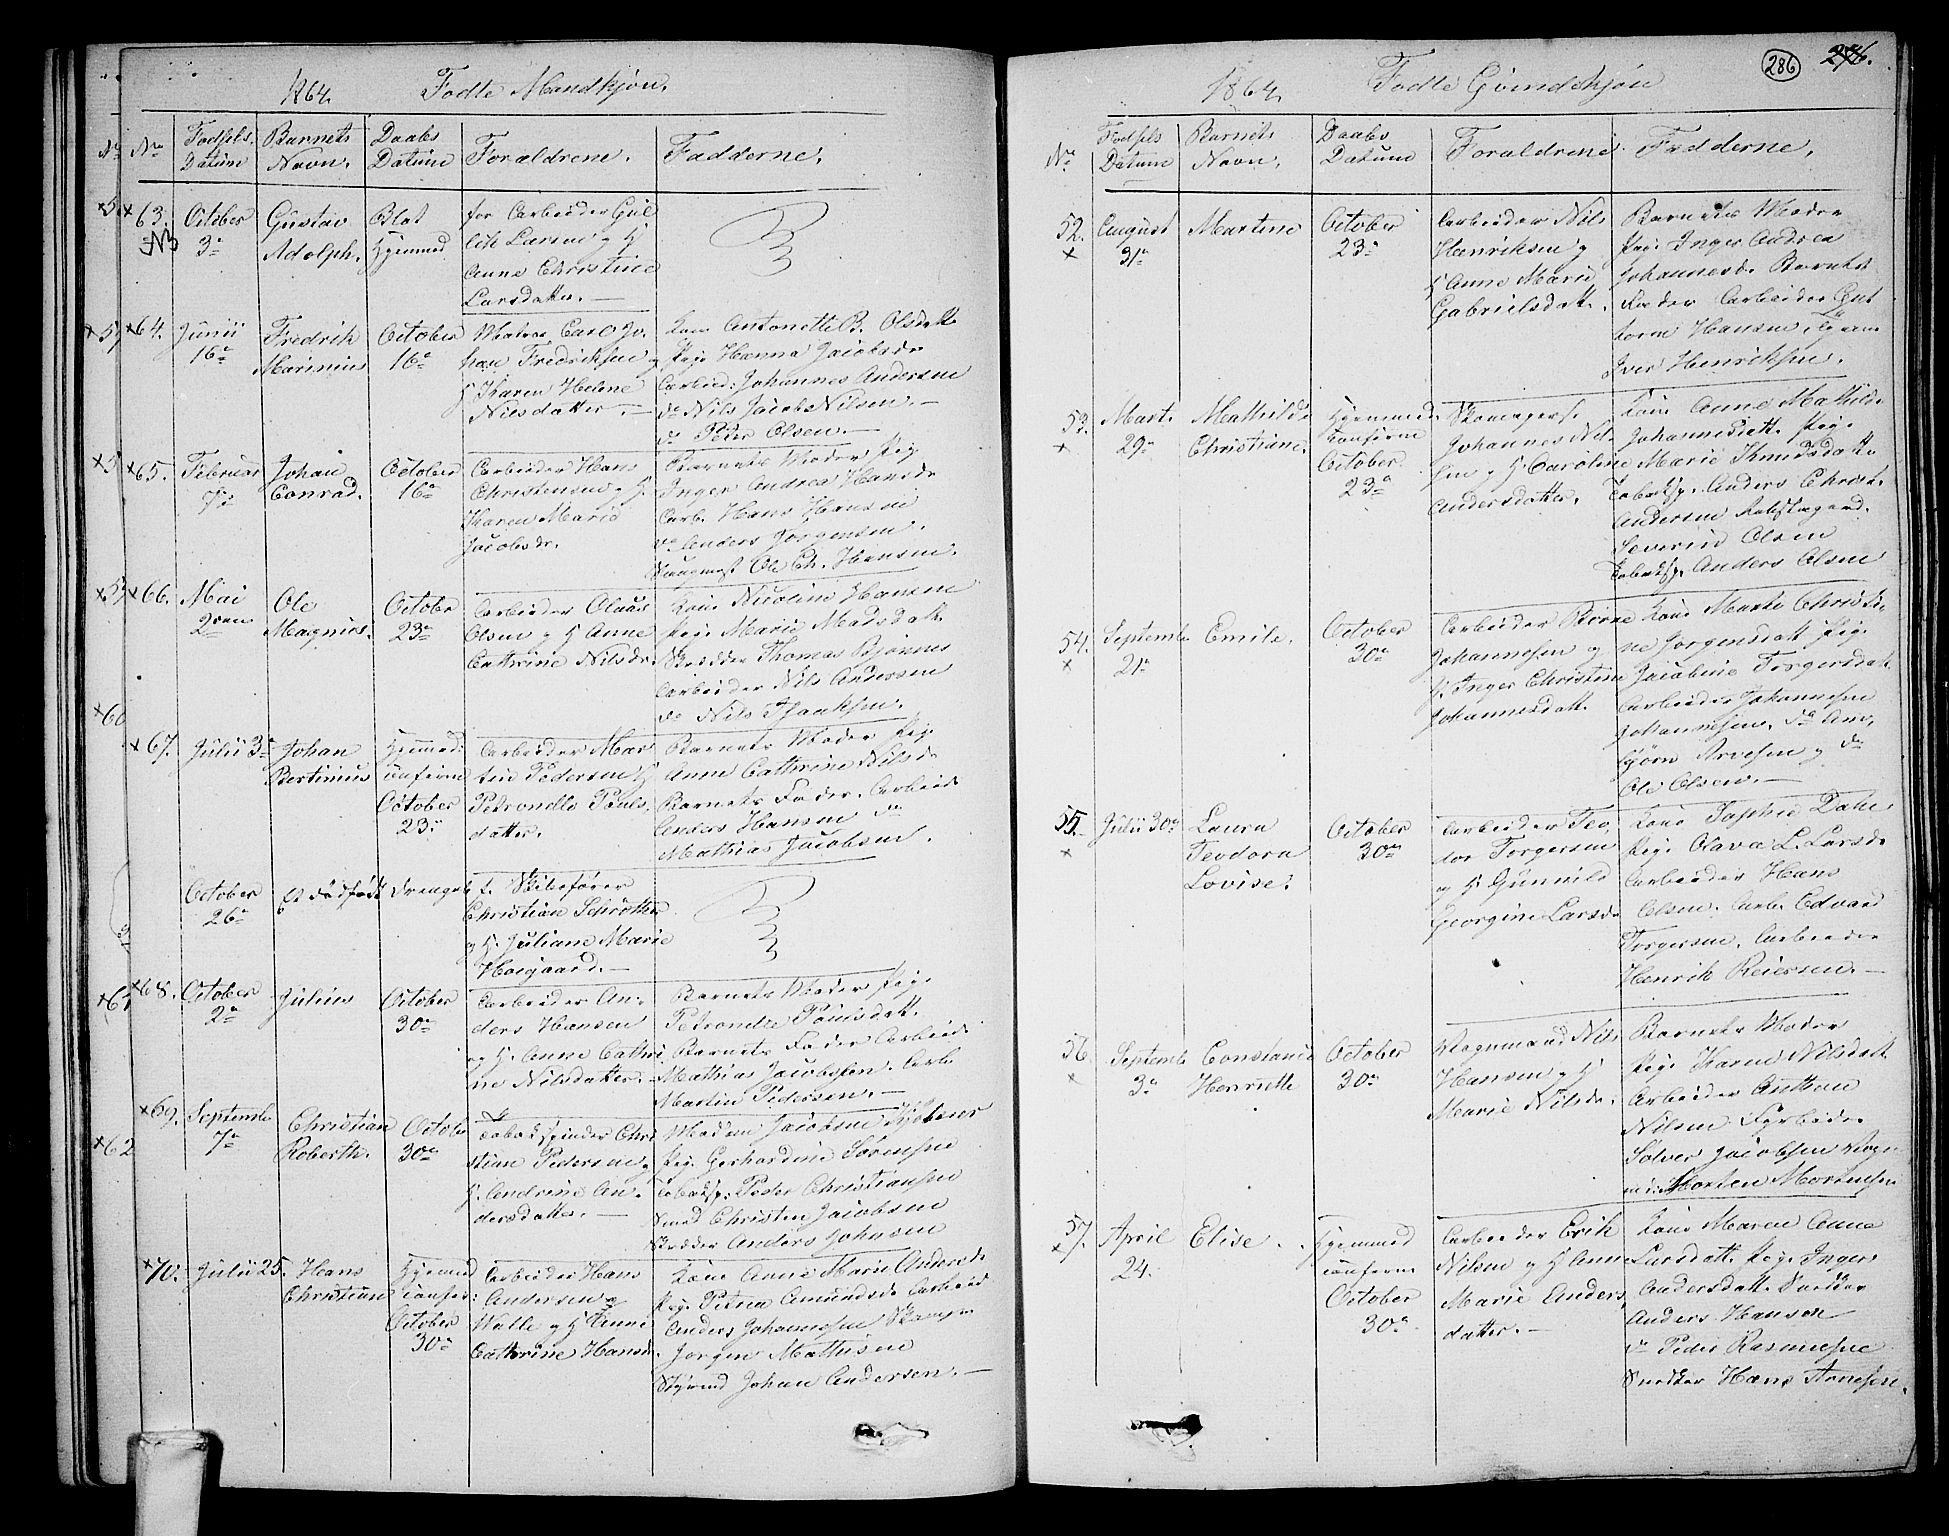 1864. Fødte Mandkjøn.
No No Fødsels Datum Barnets Navn. Daabs Datum Forældrene. Fadderne.
63. October 3de Gustav Adolph. Blot hjemmed
for Arbeider Gul
Larsen og H
Anne Christine
Larsdatter. —
64. Junii 16de Fredrik Marinius October 16de
Matros Carl Jo
han Fredriksen og
H Karen Helene
Nilsdatter. —
Kone Antonette B. Olsdatt
Pige Hanna Jacobsdr
Arbeid: Johannes Andersen
do Nils Jacob Nilsen. —
do Peder Olsen. —
65. Februar 7de Johan Conrad. October 16de
Arbeider Hans
Christensen og H.
Karen Marie
Jacobsdr.
Barnets Moder Pig
Inger Andrea Hansdr
Arb. Hans Hansen
do Anders Jørgensen
Ole Ch. Hansen.
66. Mai 2den Ole Magnus. October 23de
Arbeider Olaus
Olsen og H Anne
Cathrine Nilsdr.
Kone Nicoline Hansen
Pige Marie Madsdatt.
Skrædder Thomas Bjønnes
Arbeider Nils Andersen
do Nils Isaaksen.
67. Julii 3de Johan Bertinius Hjemmed: confirm October 23de
Arbeider Mar
tin Pedersen H
Petronelle Pouls
datter.
Barnets Moder Pige
Anne Cathrine Nilsd
Barnets Fader. Arbeid
Anders Hansen do
Mathias Jacobsen.
October 26de Et dødfødt Drengeb
f. Skibsfører
Christian Schrøtter
og H. Juliane Marie
Høigaard. —
68. October 2de Julius October 30de
Arbeider An-
ders Hansen
og H. Anne Cathri
ne Nilsdatter. —
Barnets Moder Pige
Petronelle Poulsdatt.
Barnets Fader Arbeid
Mathias Jacobsen. Arb
Martin Pedersen. —
69. Septemb 7de Christian Roberth. October 30de
Tobakspinder Chri
stian Pedersen og
H. Andrine An-
dersdatter. —
Madam Jacobsen
Pige Gerhardine Sørensen
Tobaksp. Peder Christiansen
Smed Christen Jacobsen
Skrædder Anders Johnsen
70. Julii 25. Hans Christian Hjemmed confir: October 30de
Arbeider Hans
Andersen
Walle og H Anne
Cathrine Hansdr.
Kone Anne Marie Andersdr
Pige Petrea Amundsdr Arbeid
Anders Johannesen
Jørgen Mathisen
Johan Andersen. —
286 276.
1864. Fødte Qvindekjøn
No Fødsels Datum Barnets Navn. Daabs Datum Forældrene Fadderne.
52. August 31te Martine October 23de
Arbeider Nils
Henriksen og
H Anne Marie
Gabrielsdatt.
Barnets Moder
Pige Inger Andrea
Johannesdr Barnets
Fader Arbeider Gut
torm Hansen,
Iver Henriksen.
53. Mart. 29de Mathilde Christiane. Hjemmed. confirm October 23de
Skomagers.
Johannes Nil-
sen og H. Caroline
Andersdatter.
Kone Anne Mathild
Johannesdatt. Pige
Marie Knudsdatt
Tobaksp. Anders Christ.
Andersen
Severin Olsen
Tobaksp. Anders Olsen
54. Septemb 21de Emilie. October 30de
Arbeider Børre
Johannesen og
H. Inger Christine
Johannesdatt.
Kone Marte Christi
ne Jørgensdatt Pige
Jacobine Torgersdatt
Arbeider Johannesen
Johannesen, do Am
bjørn Arvesen og do
Ole Olsen. —
55. Julii 30de Laura Teodora Lovise. October 30de
Arbeider Teo
dor Torgersen
og H. Gunnild
Georgine Larsdr
Kone Sophie Dahl
Pige Olava L. Larsdr
Arbeider Hans
Olsen. Arb. Edvard
Torgersen. Arbeider
Henrik Reiersen. —
56. Septemb 3de Constance Henriette October 30de
Vognmand Nils
Hansen og H
Marie Nilsdr.
Barnets Moder
Pige Karen Nilsdatt
Arbeider Anthon
Nilsen Arbeider
Solver Jacobsen Vogn
m: Morten Mortensen
57. April 24. Elise. Hjemmed confirm October 30de
Arbeider Erik
Nilsen og H Ann
Marie Anders
datter. —
Kone Maren Anne
Larsdatt. Pige Inger
Andersdatt. Snedker
Anders Hansen
do Peder Rasmussen
Snedker Hans Arnesen.